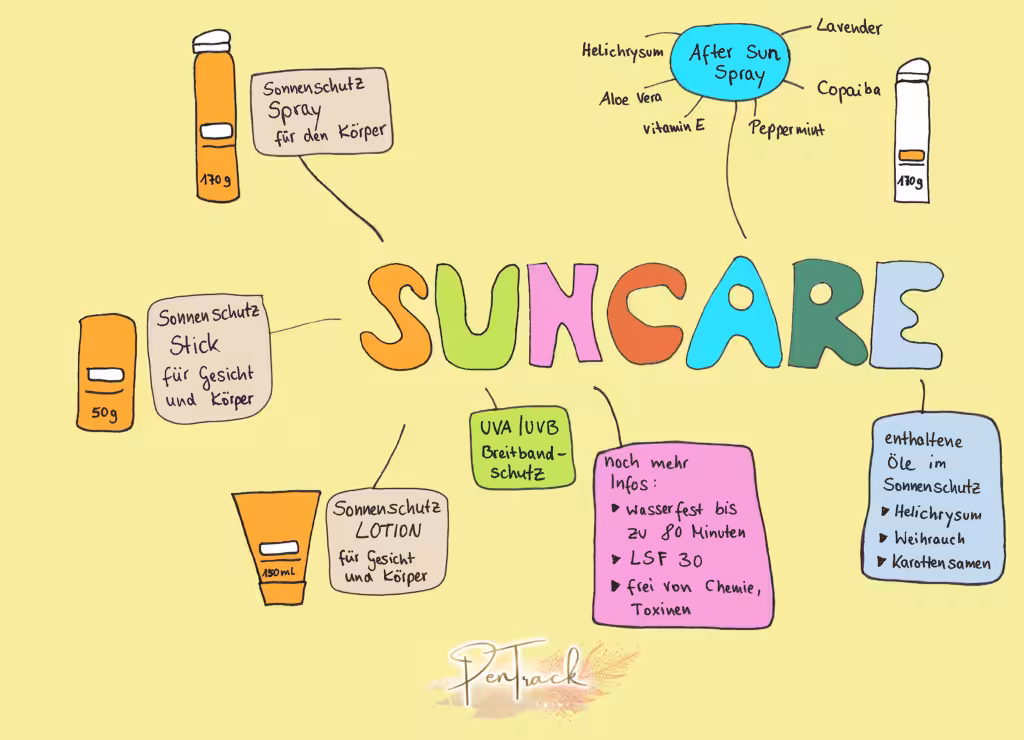 Sonnenschutz
Spray
für den Körper
170g
After Sun
Spray
Helichrysum
Lavender
Aloe Vera
Copaiba
vitamin E
Peppermint
170g
SUNCARE
Sonnenschutz
Stick
für Gesicht
und Körper
50g
Sonnenschutz
LOTION
für Gesicht
und Körper
150mL
UVA/UVB
Breitband-
schutz
noch mehr
Infos:
wasserfest bis
zu 80 Minuten
LSF 30
frei von Chemie,
Toxinen
enthaltene
Öle im
Sonnenschutz
Helichrysum
Weihrauch
Karottensamen
PenTrack